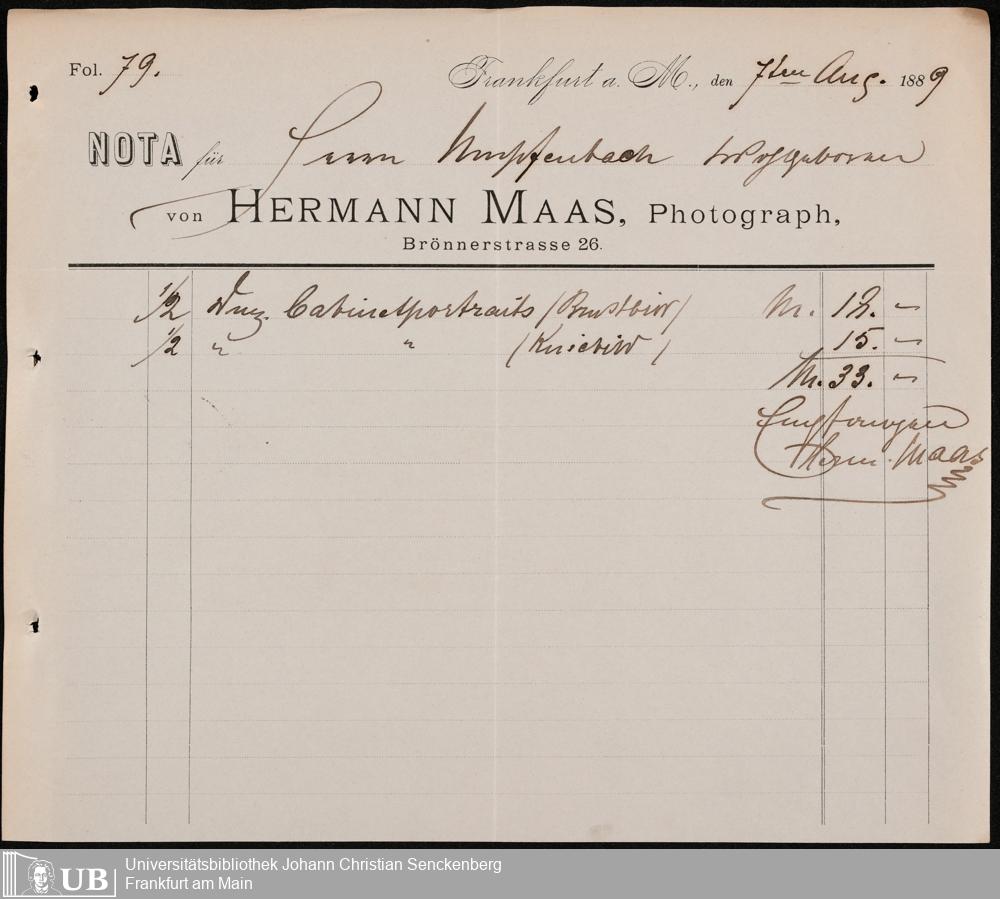 Fol. 79. Frankfurt a. M., den 7ten Aug. 1889
NOTA für Herrn Umpfenbach Wohlgeboren
von HERMANN MAAS, Photograph,
Brönnerstrasse 26.
1/2 Duz. Cabinetportraits (Brustbild) M. 18. -
1/2 " " (Kniebild) 15. -
M. 33. -
Empfangen
Herm. Maas
UB Universitätsbibliothek Johann Christian Senckenberg
Frankfurt am Main